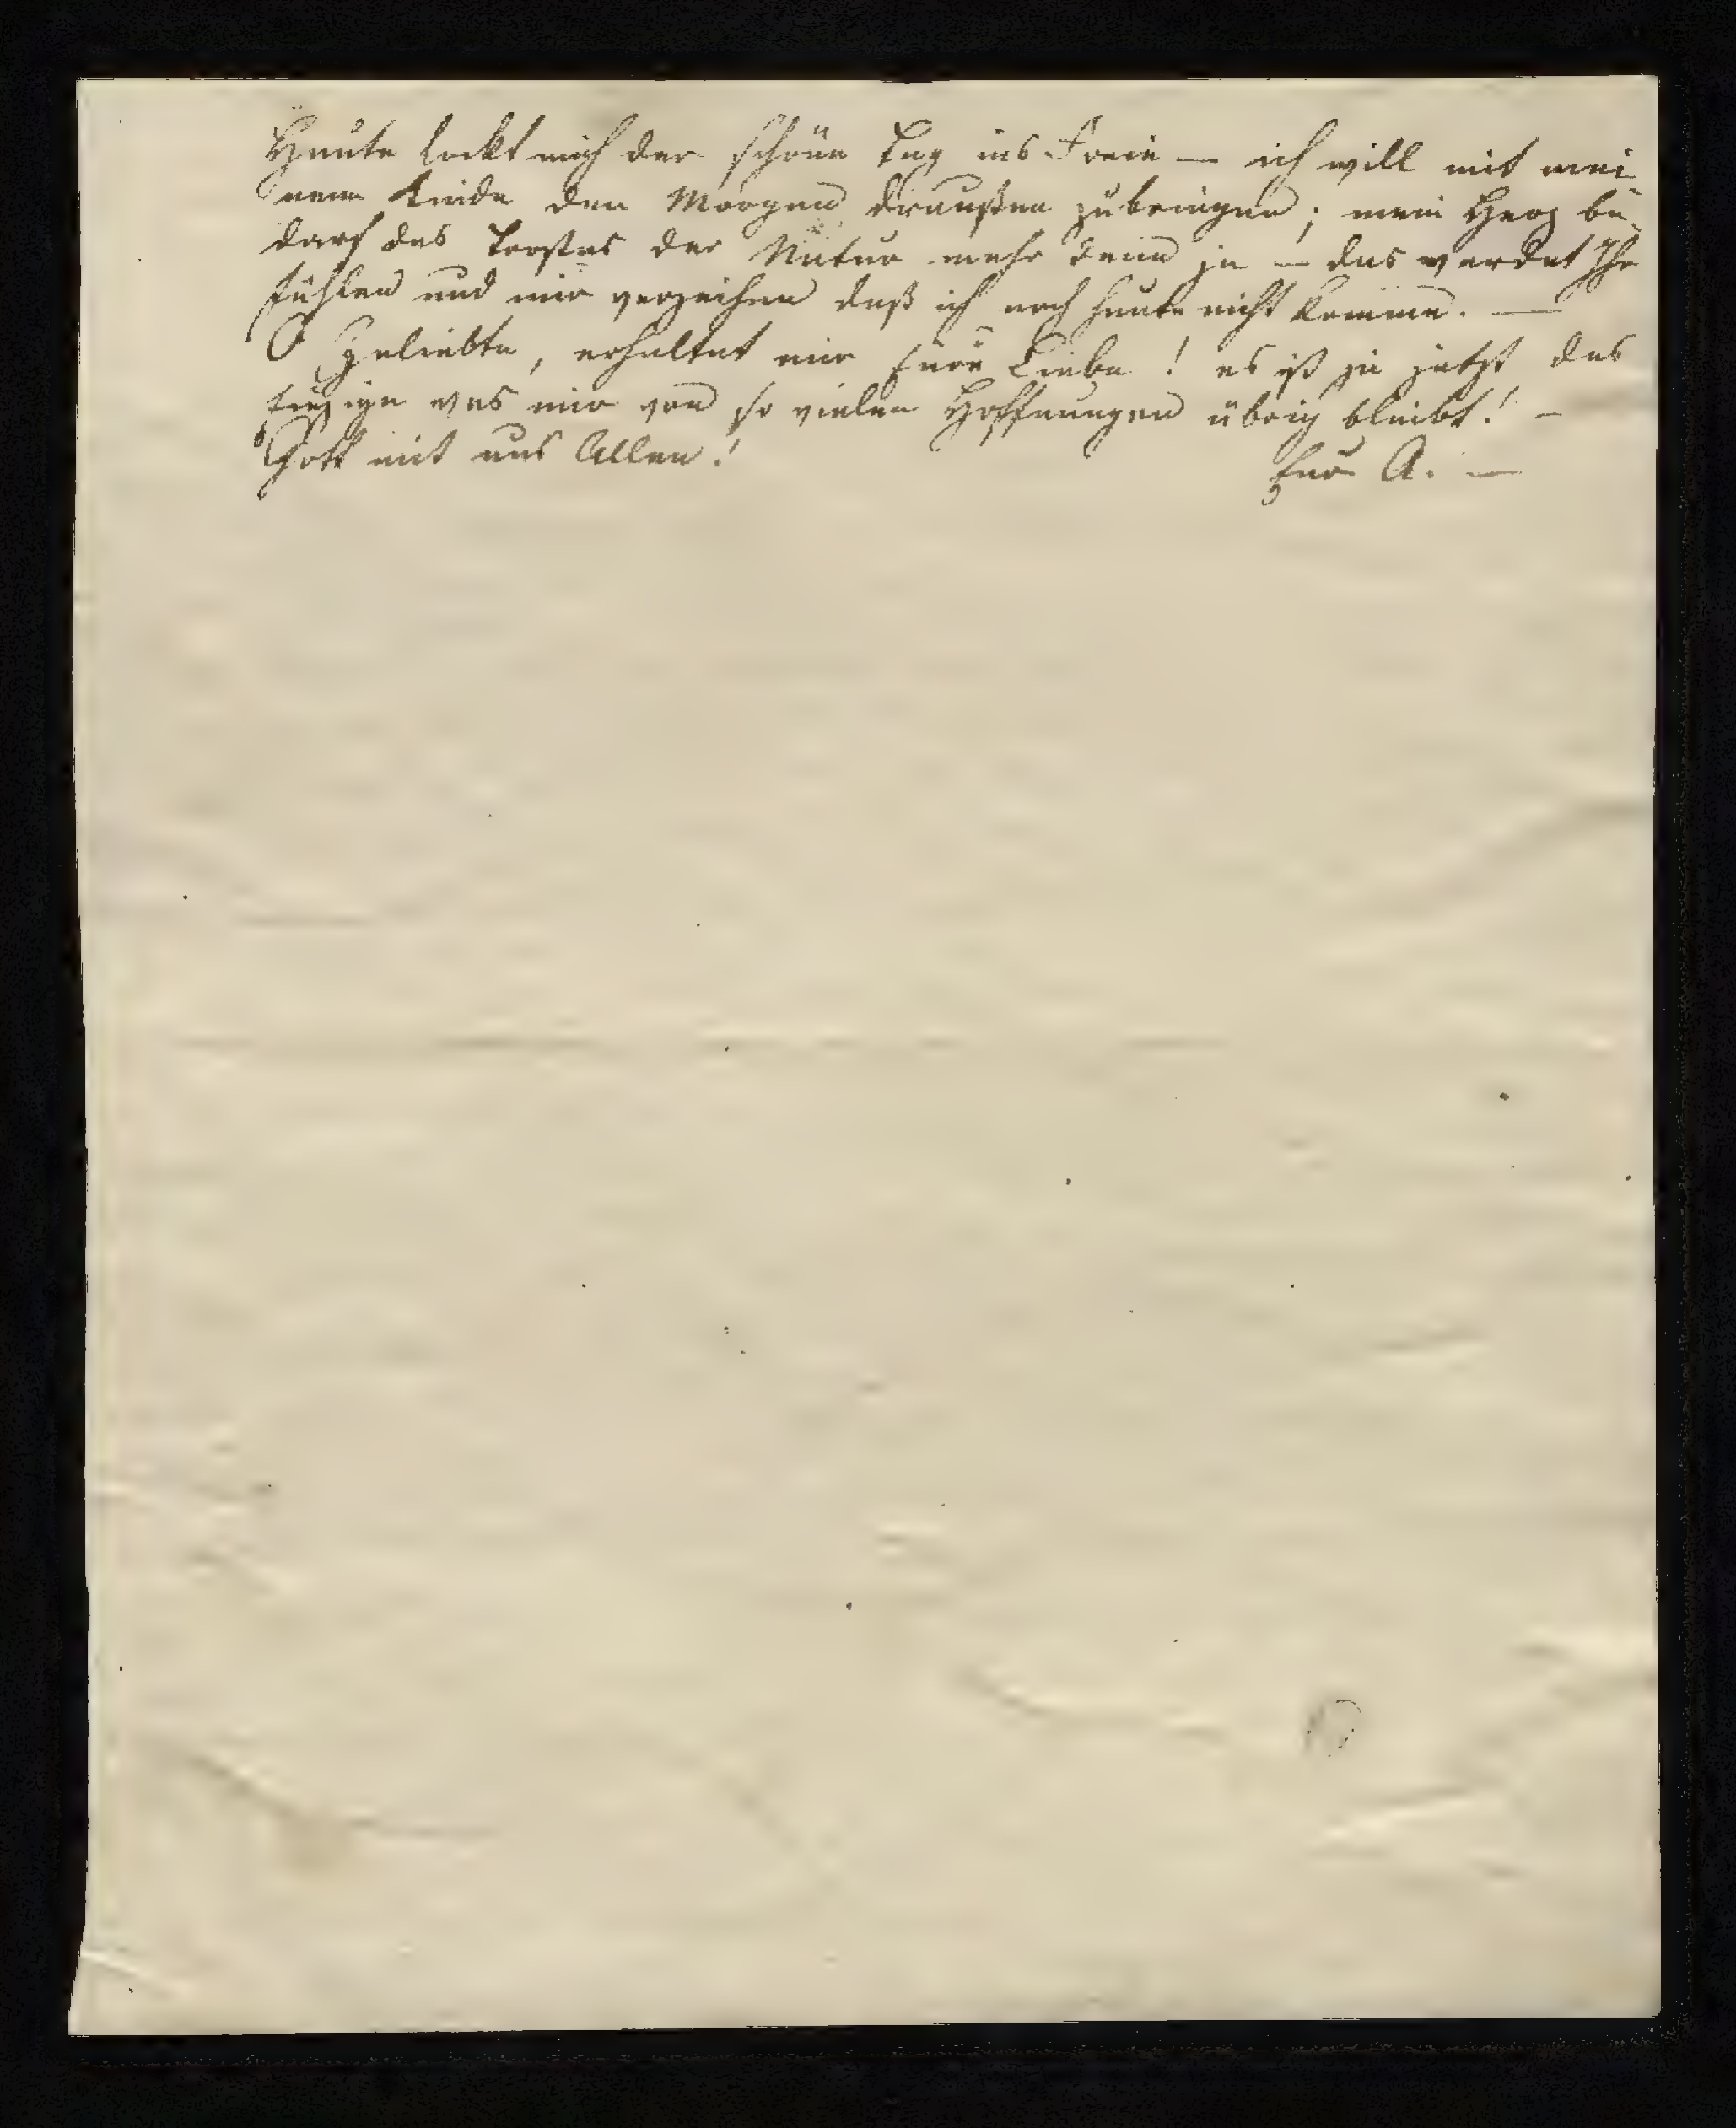 Heute lockt mich der schöne Tag ins Freie — ich will mit mei-
nem Kinde den Morgen draußen zubringen; mein Herz be-
darf des Trostes der Natur mehr denn je — das werdet Ihr
fühlen und mir verzeihen daß ich noch heute nicht komme. —
O Geliebte, erhaltet mir Eure Liebe! es ist ja jetzt das
Einzige was mir von so vielen Hoffnungen übrig bleibt! —
Gott mit uns Allen!
Eure A. —